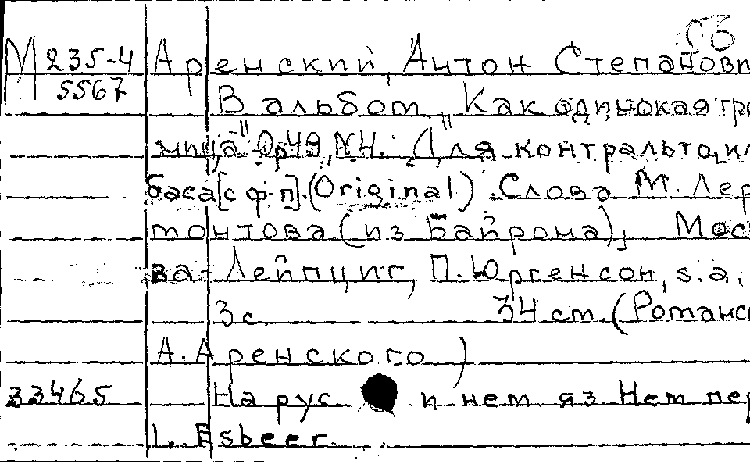 53
М 235-4 Аренский, Антон Степанови
5567 В альбом „Как одинокая гро
мница" Op.49, N4. Для контральто, ил
баса [с ф-п]. (Original). Слова М. Лер
монтова (из Байрона), Моск
ва-Лейпциг, П. Юргенсон, s.a.
3 с. 34 см. (Романс
А. Аренского)
33465 На рус и нем яз Нем пер
L. Esbeer.